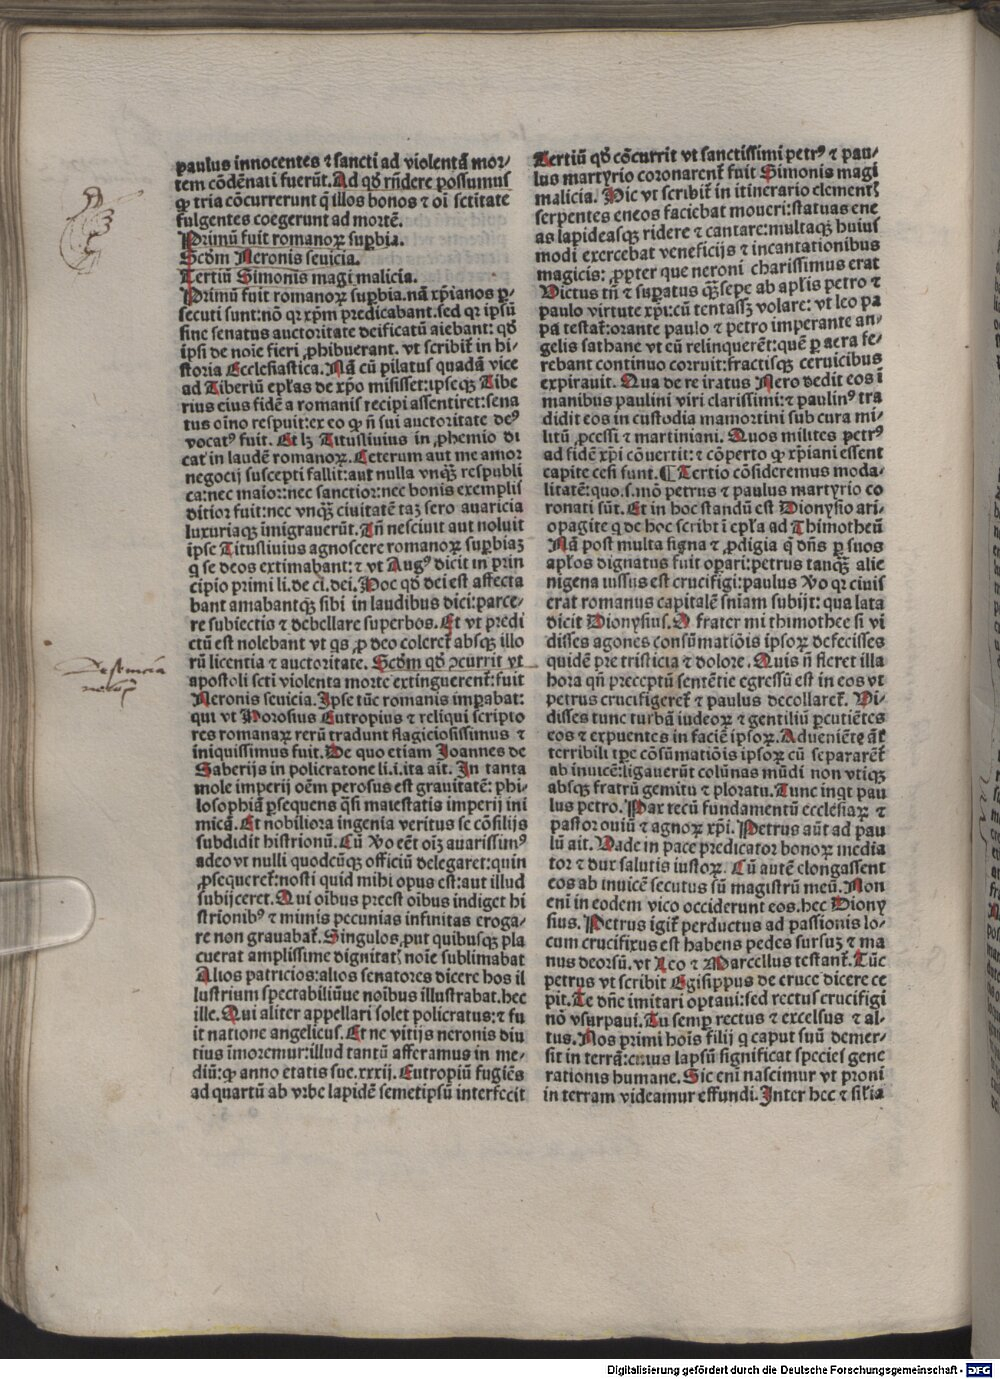 paulus innocentes ⁊ sancti ad violentā mor⸗
tem cōdēnati fuerūt. Ad qđ rñdere possumus
ꝙ tria cōcurrerunt q̄ illos bonos ⁊ oī sctitate
fulgentes coegerunt ad mortē.
Primū fuit romanoꝝ suꝑbia.
Scđm Neronis seuicia.
Tertiū Simonis magi malicia.
Primū fuit romanoꝝ suꝑbia. nā xp̄ianos ꝑ⸗
secuti sunt: nō qꝛ xp̄m predicabant. sed qꝛ ipsū
sine senatus auctoritate deificatū aiebant: qđ
ipsi de noīe fieri ꝓhibuerant. vt scribit̄ in hi⸗
storia Ecclesiastica. Nā cū pilatus quadā vice
ad Tiberiū ep̄las de xp̄o misisset: ipseqꝫ Tibe
rius eius fidē a romanis recipi assentiret: sena
tus oīno respuit: ex eo ꝙ n̄ sui auctoritate deꝰ
vocatꝰ fuit. Et lꝫ Titusliuius in ꝓhemio di
cat in laudē romanoꝝ. Ceterum aut me amor
negocij suscepti fallit: aut nulla vnqꝫ̄ respubli
ca: nec maior: nec sanctior: nec bonis exemplis
ditior fuit: nec vnqꝫ̄ ciuitatē taꝫ sero auaricia
luxuriaqꝫ īmigrauerūt. Tn̄ nesciuit aut noluit
ip̄se Titusliuius agnoscere romanoꝝ suꝑbiaꝫ
q̄ se deos extimabant: ⁊ vt Augꝰ dicit in prin
cipio primi li. de ci. dei. Hoc qđ dei est affecta
bant amabantqꝫ sibi in laudibus dici: parce⸗
re subiectis ⁊ debellare superbos. Et vt predi
ctū est nolebant vt qs ꝓ deo coleret̄ absqꝫ illo
rū licentia ⁊ auctoritate. Scđm qđ ꝯcurrit vt
apostoli scti violenta morte extinguerent̄: fuit
Neronis seuicia. Ipse tūc romanis imꝑabat:
qui vt Horosius Eutropius ⁊ reliqui scripto
res romanaꝝ rerū tradunt flagiciosissimus ⁊
iniquissimus fuit. De quo etiam Joannes de
Saberijs in policratone li. i. ita ait. In tanta
mole imperij oēm perosus est grauitatē: phi⸗
losophiā ꝑsequens q̄si maiestatis imperij ini
micā. Et nobiliora ingenia veritus se cōsilijs
subdidit histrionū. Cū ꝟo eēt oīꝫ auarissimꝰ
adeo vt nulli quodcūqꝫ officiū delegaret: quin
ꝓsequeret̄: nosti quid mihi opus est: aut illud
subijceret. Qui oibus preest oibus indiget hi
strionibꝰ ⁊ mimis pecunias infinitas eroga⸗
re non grauabat̄. Singulos ꝓut quibusqꝫ pla
cuerat amplissime dignitatꝭ noīe sublimabat
Alios patricios: alios senatores dicere hos il
lustrium spectabiliūue noībus illustrabat. hec
ille. Qui aliter appellari solet policratus: ⁊ fu
it natione angelicus. Et ne vitijs neronis diu
tius īmoremur: illud tantū afferamus in me⸗
diū: ꝙ anno etatis sue. xxxij. Eutropiū fugiēs
ad quartū ab vrbe lapidē semetipsū interfecit
Tertiū qđ cōcurrit vt sanctissimi petrꝰ ⁊ pau⸗
lus martyrio coronarent̄ fuit Simonis magi
malicia. Hic vt scribit̄ in itinerario clementꝭ
serpentes eneos faciebat moueri: statuas ene
as lapideasqꝫ ridere ⁊ cantare: multaqꝫ huius
modi exercebat veneficijs ⁊ incantationibus
magicis: ꝓpter que neroni charissimus erat
Victus tn̄ ⁊ suꝑatus qꝫ̄sepe ab ap̄lis petro ⁊
paulo virtute xp̄i: cū tentassꝫ volare: vt leo pa
pa testat̄: orante paulo ⁊ petro imperante an⸗
gelis sathane vt eū relinquerēt: quē ꝑ aera fe⸗
rebant continuo corruit: fractisqꝫ ceruicibus
expirauit. Qua de re iratus Nero dedit eos ī
manibus paulini viri clarissimi: ⁊ paulinꝰ tra
didit eos in custodia mamortini sub cura mi⸗
litū ꝓcessi ⁊ martiniani. Quos milites petrꝰ
ad fidē xp̄i cōuertit: ⁊ cōperto ꝙ xp̄iani essent
capite cesi sunt. ¶ Tertio cōsideremus moda⸗
litatē: quo. s. mō petrus ⁊ paulus martyrio co
ronati sūt. Et in hoc standū est Dionysio ari⸗
opagite q de hoc scribt ī ep̄la ad Thimotheū
Nā post multa signa ⁊ ꝓdigia q̄ dn̄s ꝑ suos
ap̄los dignatus fuit oꝑari: petrus tanqꝫ̄ alie
nigena iussus est crucifigi: paulus ꝟo qꝛ ciuis
erat romanus capitalē sn̄iam subijt: qua lata
dicit Dionysius. O frater mi thimothee si vi
disses agones consūmatiōis ipsoꝝ defecisses
quidē pre tristicia ⁊ dolore. Quis n̄ fleret illa
hora qn̄ preceptū sentētie egressū est in eos vt
petrus crucifigeret̄ ⁊ paulus decollaret̄. Vi⸗
disses tunc turbā iudeoꝝ ⁊ gentiliū ꝑcutiētes
eos ⁊ expuentes in faciē ipsoꝝ. Adueniēte āt
terribili tp̄e cōsūmatiōis ipsoꝝ cū separarēt̄
ab inuicē: ligauerūt colūnas mūdi non vtiqꝫ
absqꝫ fratrū gemitu ⁊ ploratu. Tunc inqt pau
lus petro. Pax tecū fundamentū ecclesiaꝝ ⁊
pastor ouiū ⁊ agnoꝝ xp̄i. Petrus aūt ad pau
lū ait. Vade in pace predicator bonoꝝ media
tor ⁊ dux salutis iustoꝝ. Cū autē elongassent
eos ab inuicē secutus sū magistrū meū. Non
enī in eodem vico occiderunt eos. hec Diony
sius. Petrus igit̄ perductus ad passionis lo⸗
cum crucifixus est habens pedes sursuꝫ ⁊ ma
nus deorsū. vt Leo ⁊ Marcellus testant̄. Tūc
petrus vt scribit Egisippus de cruce dicere ce
pit. Te dn̄e imitari optaui: sed rectus crucifigi
nō vsurpaui. Tu semꝑ rectus ⁊ excelsus ⁊ al⸗
tus. Nos primi hoīs filij q caput suū demer⸗
sit in terrā: cuius lapsū significat species gene
rationis humane. Sic enī nascimur vt proni
in terram videamur effundi. Inter hec ⁊ sil̄ia
Digitalisierung gefördert durch die Deutsche Forschungsgemeinschaft - DFG